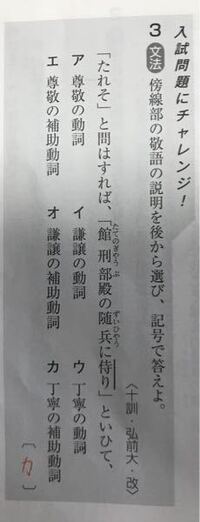 入試問題にチャレンジ！
3 文法 傍線部の敬語の説明を後から選び、記号で答えよ。
〈十訓・弘前大・改〉
「たれそ」と問はすれば、「館刑部殿の随兵に侍り」といひて、
たてのぎやうぶ
ずいひやう
ア 尊敬の動詞 イ 謙譲の動詞 ウ 丁寧の動詞
エ 尊敬の補助動詞 オ 謙譲の補助動詞 カ 丁寧の補助動詞
〔カ〕